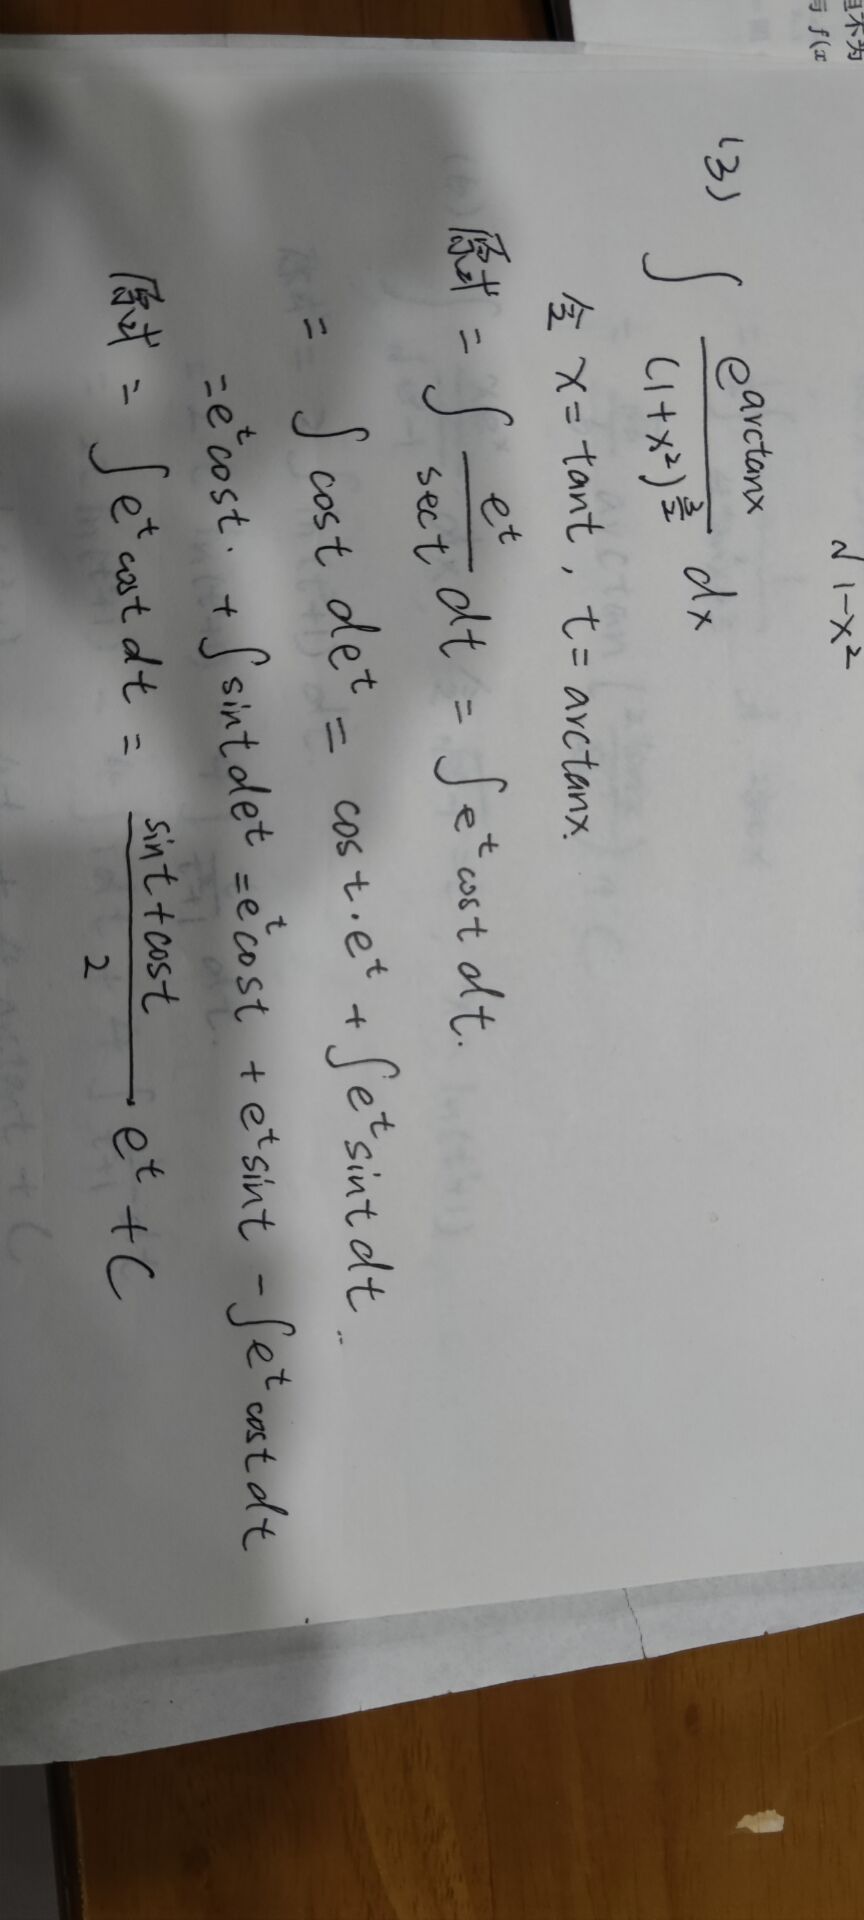 且不为
与 f(x
√1-x²
(3) ∫ e^arctanx / (1+x²)^(3/2) dx
令 x=tant, t=arctanx.
原式 = ∫ e^t / sect dt = ∫ e^t cost dt.
= ∫ cost de^t = cost·e^t + ∫ e^t sint dt..
= e^t cost. + ∫ sint de^t = e^t cost + e^t sint - ∫ e^t cost dt
原式 = ∫ e^t cost dt = (sint+cost) / 2 · e^t + C